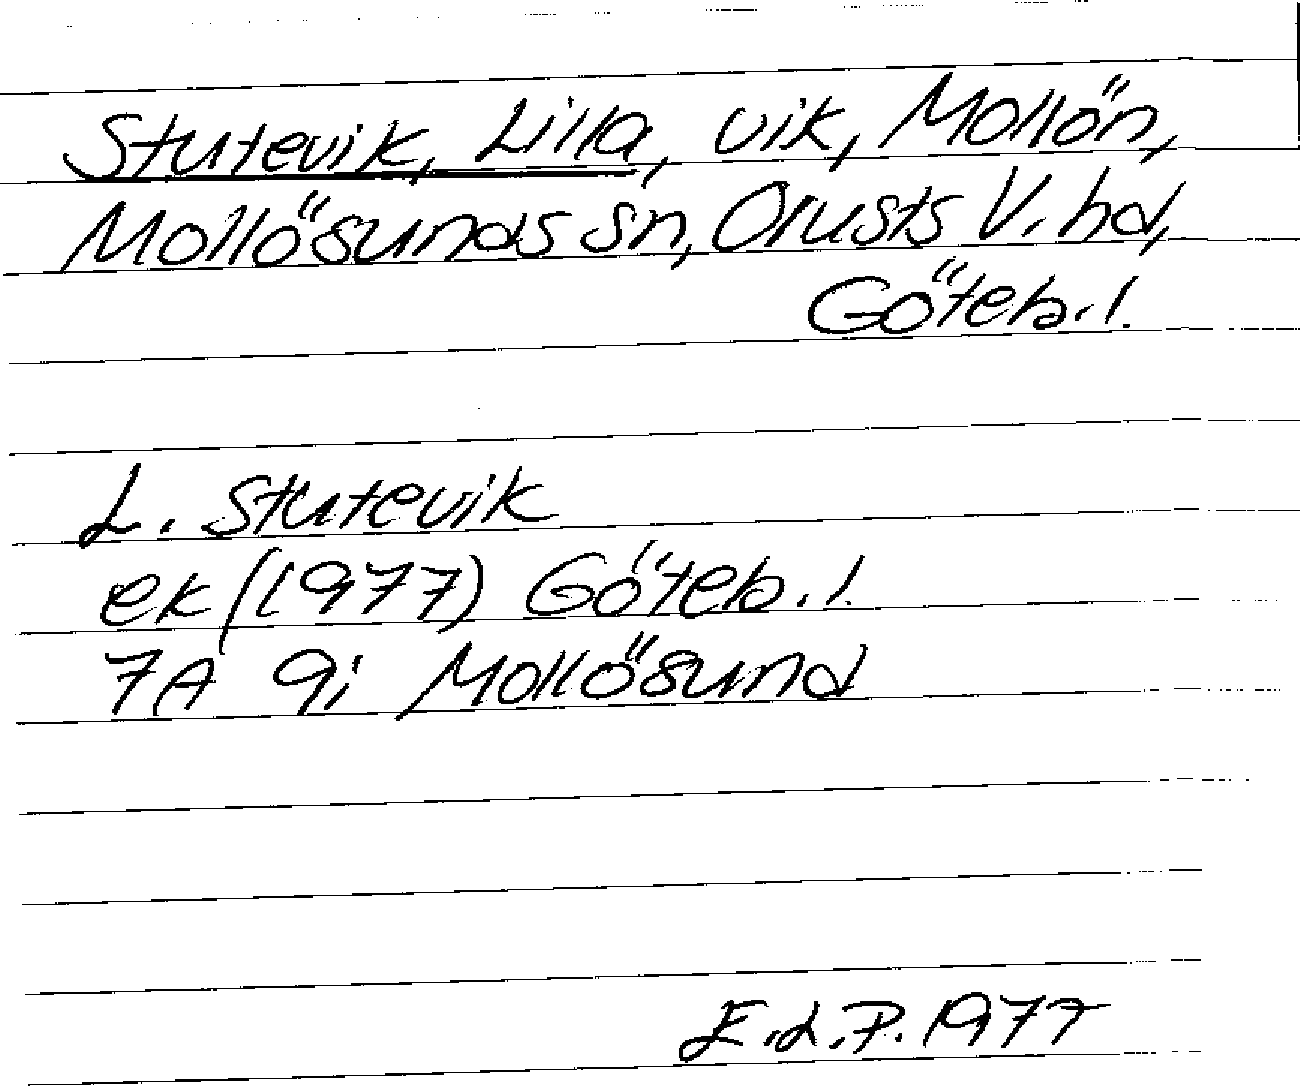 Stutevik, Lilla, vik, Mollön,
Mollösunds sn, Orusts V. hd,
Göteb. l.
L. Stutevik
ek (1977) Göteb. l.
7A 9i Mollösund
E.L.P. 1977